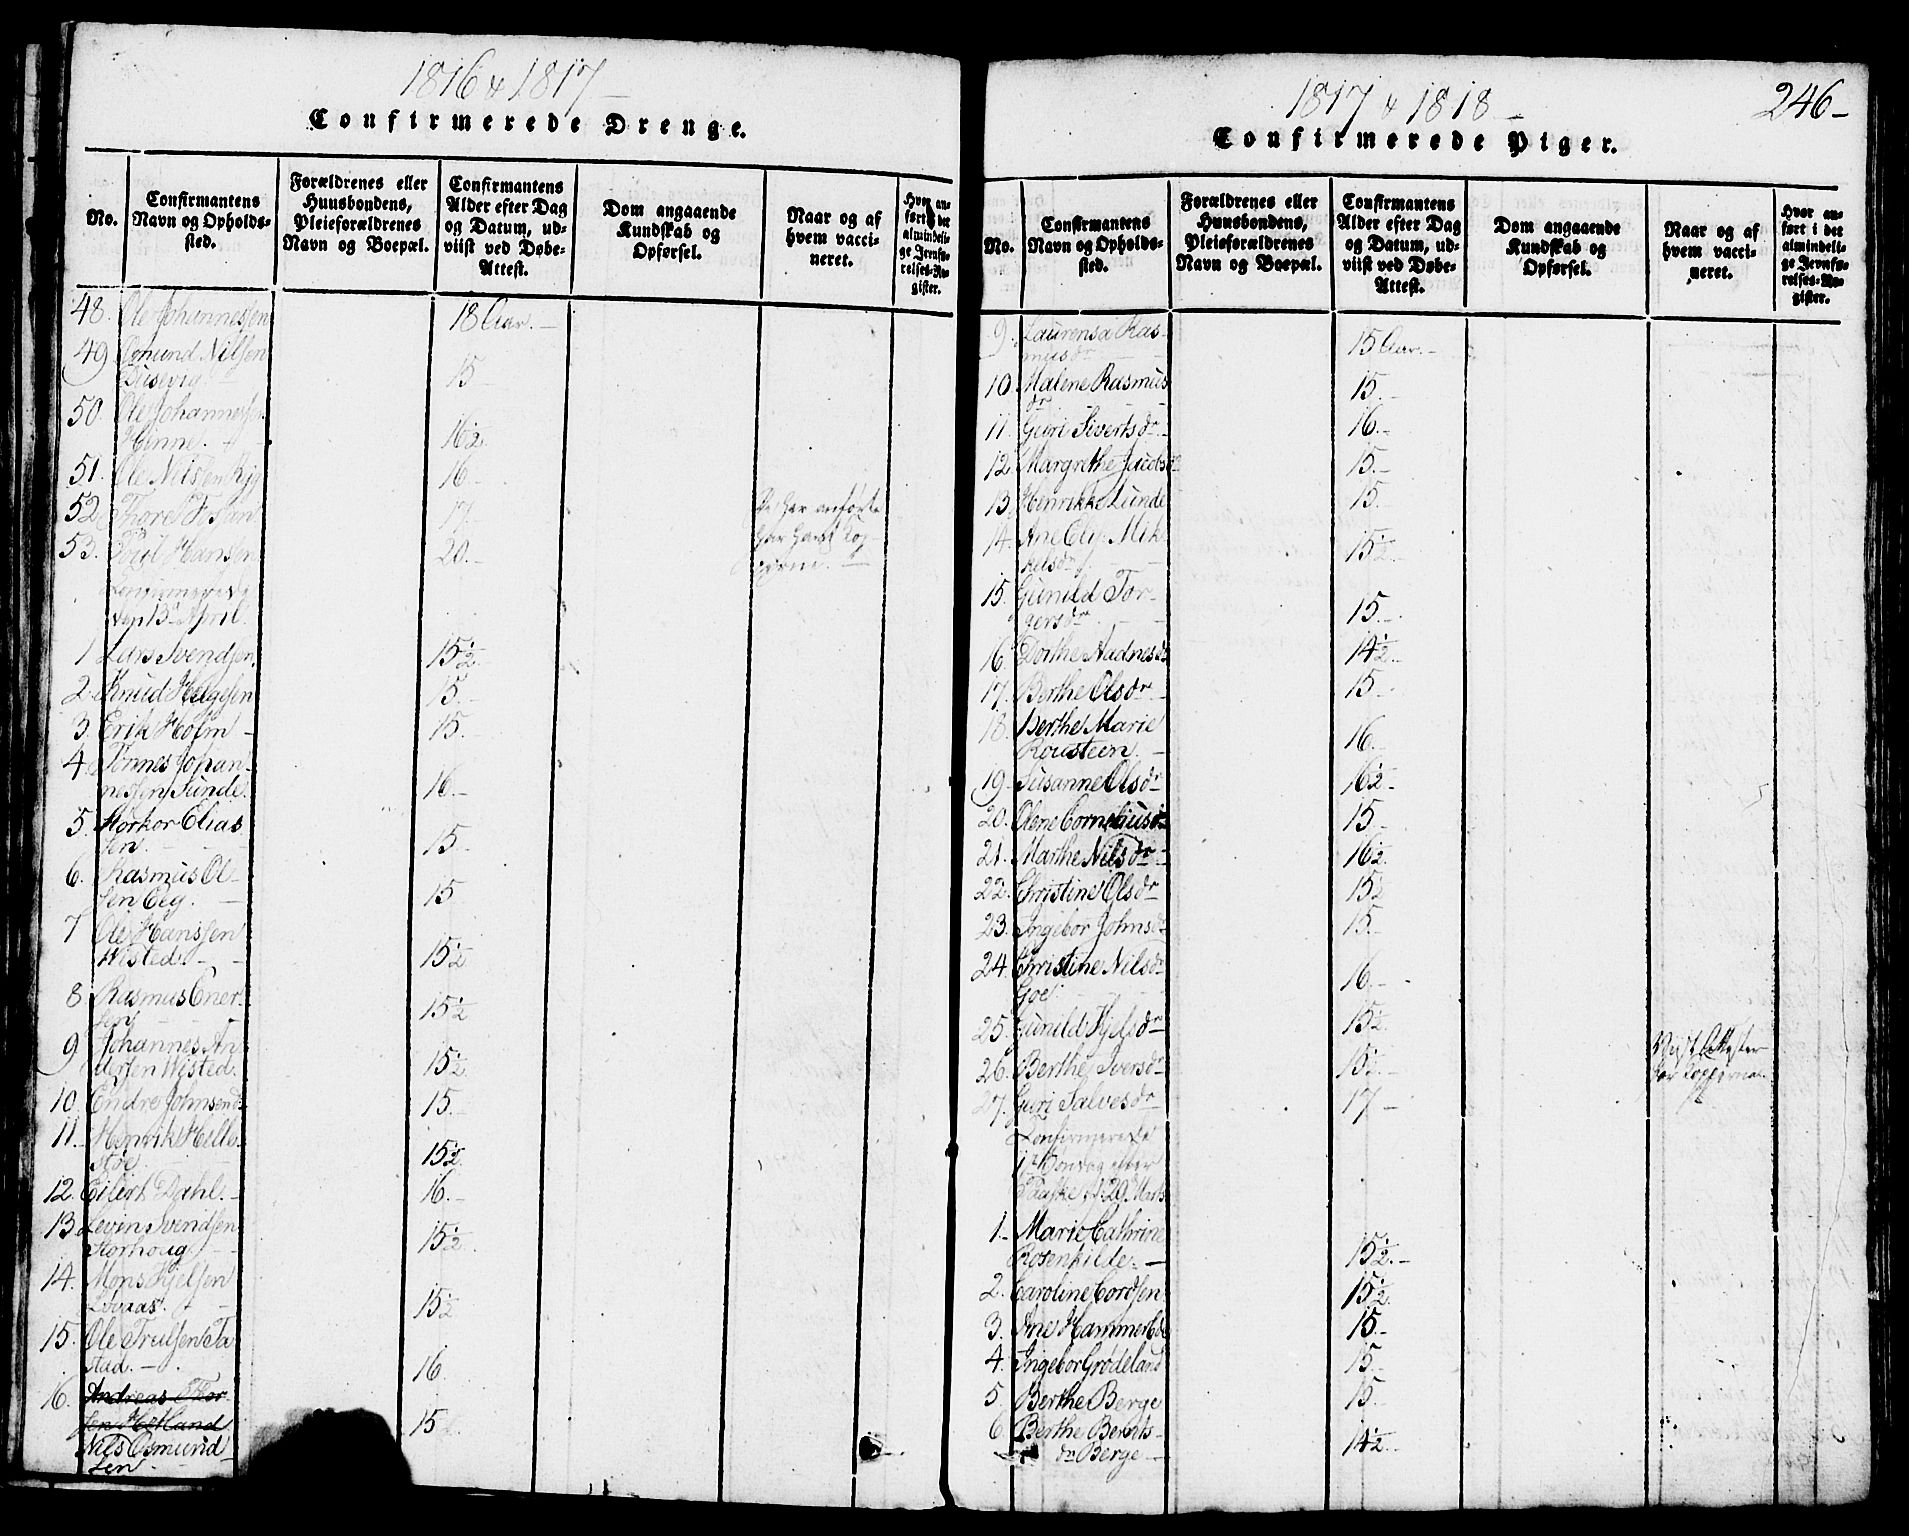 1816 & 1817
Confirmerede Drenge.
No.
Confirmantens Navn og Opholds-sted.
Forældrenes eller Huusbondens, Pleieforældrenes Navn og Boepæl.
Confirmantens Alder efter Dag og Datum, ud-viist ved Døbe-Attest.
Dom angaaende Kundskab og Opførsel.
Naar og af hvem vacci-neret.
Hvor an-ført i det almindeli-ge Jevnfø-relses-Re-gister.
48. Ole Johannessen 18 Aar.
49 Osmund Nilsen
Dusevig 15
50. Ole Johannessen
Hinne. 16½
51. Ole Nilsen Ryg 16
52 Thore Fosan 17
53. Poul Hansen 20.
De her anførte
har havt Kop-
perne.
Confirmerede
den 13de April.
1 Lars Svendsen. 15½
2 Knud Helgesen 15.
3. Erik Holm 15.
4. Tönnes Johan-
nessen Sunde. 16.
5. Morkor Elias
sen. 15
6. Rasmus Ol-
sen Eeg. 15
7 Ole Hanssen
Wisted. 15½
8 Rasmus Ener-
sen 15½
9 Johannes An-
dersen Wisted. 15½
10. Endre Johnsen 15.
11. Henrik Helle-
stöe. 15½
12. Eilert Dahl. 16.
13 Levin Svendsen
Storhoug 15½
14. Mons Kjelsen
15½
15. Ole Trulsen Ta
stad. 16
16. Andreas Thor
sen Hetland
Nils Osmund
sen 15
1817 & 1818
246
Confirmerede Piger.
No.
Confirmantens Navn og Opholds-sted.
Forældrenes eller Huusbondens, Pleieforældrenes Navn og Boepæl.
Confirmantens Alder efter Dag og Datum, ud-viist ved Døbe-Attest.
Dom angaaende Kundskab og Opførsel.
Naar og af hvem vacci-neret.
Hvor an-ført i det almindeli-ge Jevnfø-relses-Re-gister.
9. Laurensa Ras-
musdr 15 Aar.
10. Malene Rasmus
dr 15.
11. Guri Sivertsdr 16.
12. Margrethe Jacobsdr 15.
13. Henrikke Lunde 15.
14. Ane Elg. Mik
kelsdr 15½
15. Gunild Tor-
gersdr 15.
16. Dorthe Aadnesdr 14½
17. Berthe Olsdr 15
18. Berthe Marie
Rousteen. 16.
19. Susanne Olsdr 16½
20. Olene Corneliusdr 15
21. Marthe Nilsdr 16½
22. Christine Olsdr 15½
23. Ingebor Johnsdr 15.
24. Christine Nilsdr
Goe. 16.
25. Gunild Kjelsdr 15½
26. Berthe Iversdr 15½
27. Guri Salvesdr 17
Attester
Kopperne
Confirmerede
1ste Söndag efter
Paaske d: 29 Marts
1. Marie Cathrine
Rosenkilde. 15½
2. Caroline Cordsen 15½
3. Ane Hammer 15.
4. Ingebor Grödeland 15
5. Berthe Berge 15.
6. Berthe Bernts-
dr Berge 14½